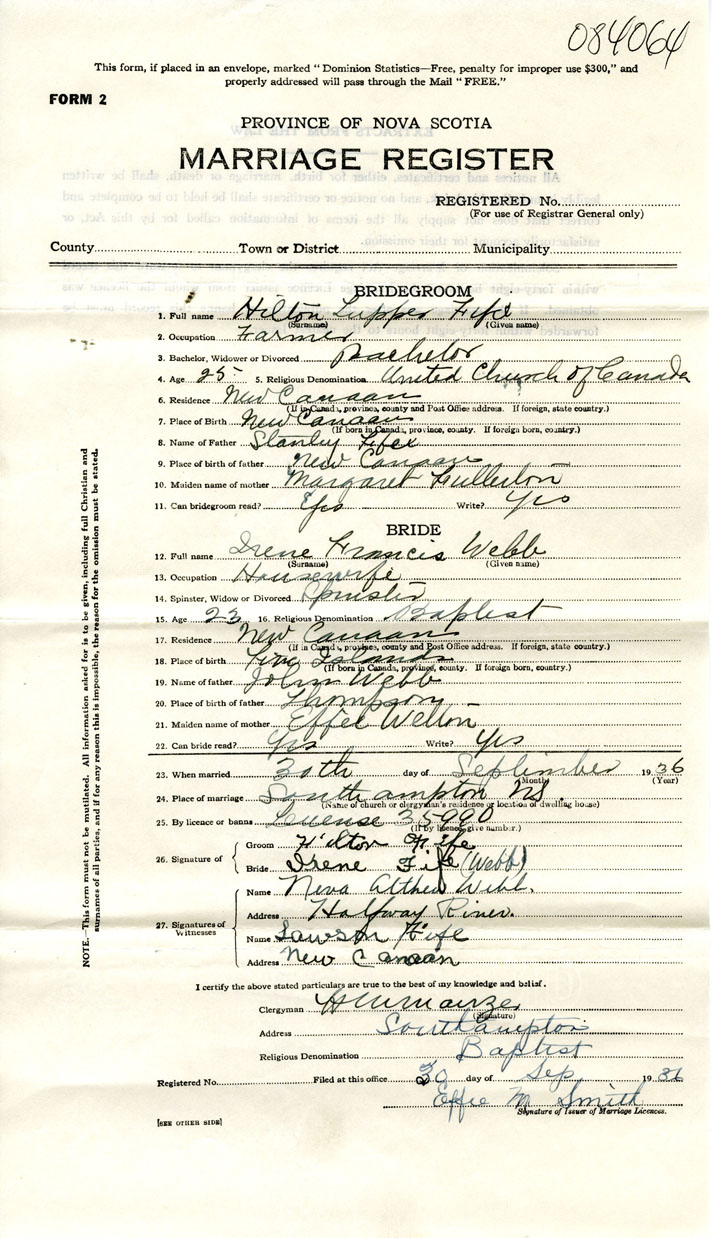 084064
This form, if placed in an envelope, marked "Dominion Statistics—Free, penalty for improper use $300," and
properly addressed will pass through the Mail "FREE."
FORM 2
PROVINCE OF NOVA SCOTIA
MARRIAGE REGISTER
REGISTERED No.
(For use of Registrar General only)
County Town or District Municipality
BRIDEGROOM
1. Full name Hilton Tupper Fife
(Surname) (Given name)
2. Occupation Farmer
3. Bachelor, Widower or Divorced Bachelor
4. Age 25 5. Religious Denomination United Church of Canada
6. Residence New Canaan
(If in Canada, province, county and Post Office address. If foreign, state country.)
7. Place of Birth New Canaan
(If born in Canada, province, county. If foreign born, country.)
8. Name of Father Stanley Fife
9. Place of birth of father New Canaan
10. Maiden name of mother Margaret Fullerton
11. Can bridegroom read? Yes Write? Yes
BRIDE
12. Full name Irene Francis Webb
(Surname) (Given name)
13. Occupation Housewife
14. Spinster, Widow or Divorced Spinster
15. Age 23 16. Religious Denomination Baptist
17. Residence New Canaan
(If in Canada, province, county and Post Office address. If foreign, state country.)
18. Place of birth Five Islands
(If born in Canada, province, county. If foreign born, country.)
19. Name of father John Webb
20. Place of birth of father Thompson
21. Maiden name of mother Effel Welton
22. Can bride read? Yes Write? Yes
23. When married 30th day of September 1936
(Month) (Year)
24. Place of marriage Southampton NS.
(Name of church or clergyman's residence or location of dwelling house)
25. By licence or banns License 35990
(If by licence give number.)
26. Signature of
Groom Hilton Fife
Bride Irene Fife (Webb)
27. Signatures of
Witnesses
Name Neva Althea Webb.
Address Halfway River.
Name Lawson Fife
Address New Canaan
I certify the above stated particulars are true to the best of my knowledge and belief.
Clergyman
(Signature)
Address Southampton
Religious Denomination Baptist
Registered No. Filed at this office 30 day of Sep 1936
Effie M Smith
Signature of Issuer of Marriage Licences.
[SEE OTHER SIDE]
NOTE.—This form must not be mutilated. All information asked for is to be given, including full Christian and
surnames of all parties, and if for any reason this is impossible, the reason for the omission must be stated.